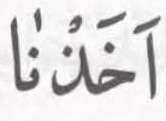 اَخَذْنٰا